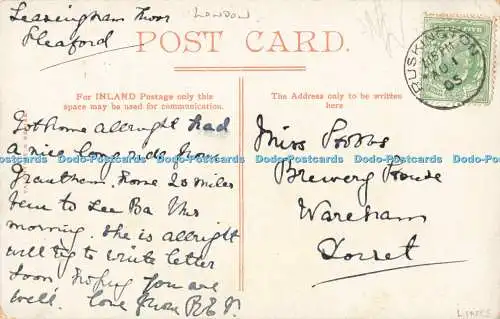 Leasingham Moor
Sleaford
LONDON
POST CARD.
RUSKINGTON
AU 1
05
For INLAND Postage only this
space may be used for communication.
The Address only to be written
here
Got home allright had
a nice long ride from
Grantham. Some 20 miles
been to see Ba this
morning. She is allright
will try to write letter
soon. Hoping you are
well. love from
Miss
Brewery House
Wareham
Dorset
Dodo-Postcards Dodo-Postcards Dodo-Postcards Dodo-Postcards Dodo-Postcards Dodo-Postcards